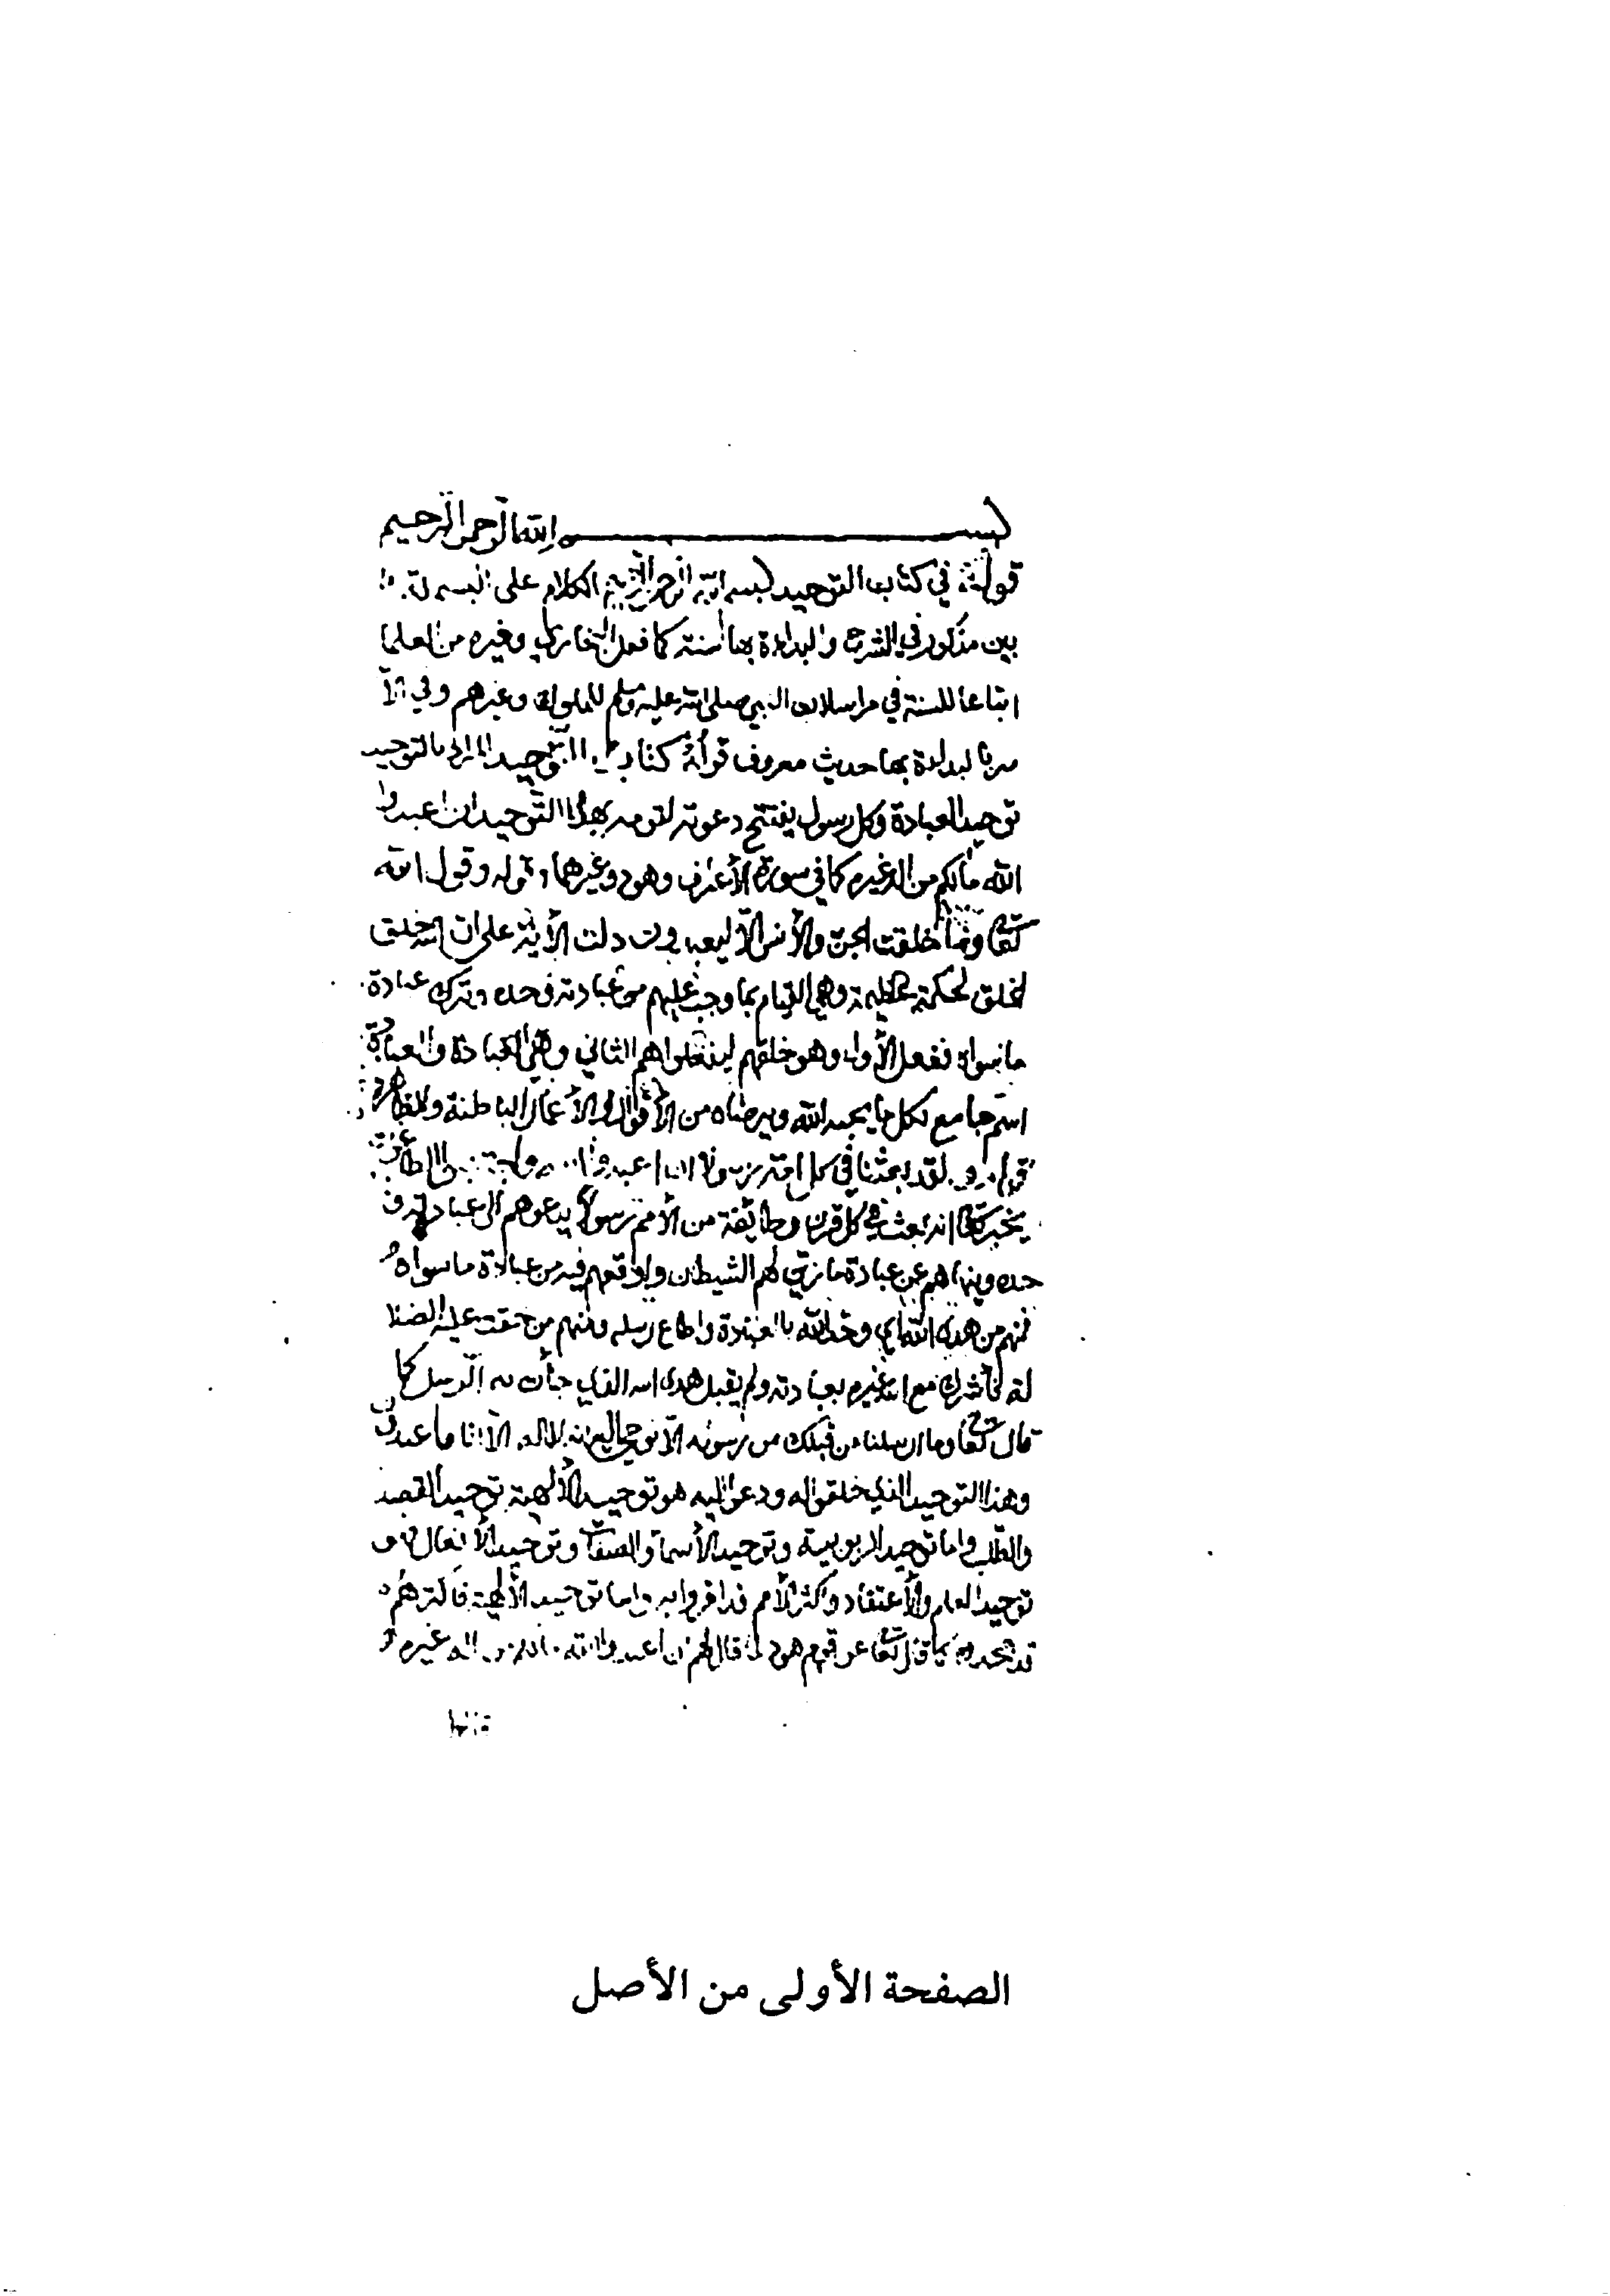 بسم الله الرحمن الرحيم
قوله في كتاب التوحيد بسم الله الرحمن الرحيم الكلام على البسملة
بين مذكور في الشرح والبداءة بها سنة كما فعل البخاري وغيره من العلما
اتباعا للسنة في مراسلات النبي صلى الله عليه وسلم للملوك وغيرهم وفي الأ
مر بالبداءة بها حديث معروف قوله كتاب التوحيد المراد بالتوحيد
توحيد العبادة وكل رسول يفتتح دعوته لقومه بهذا التوحيد ان اعبدوا
الله مالكم من اله غيره كما في سورة الأعراف وهود وغيرها قوله وقول الله
تعا وما خلقت الجن والأنس الا ليعبدون دلت الأية على ان الله خلق
الخلق لحكمة عظيمة وهي القيام بما وجب عليهم من عبادته وحده وترك عبادة
ما سواه ففعل الأول وهو خلقهم ليفعلوا هم الثاني وهي العبادة والعبادة
اسم جامع لكل ما يحبه الله ويرضاه من الأقوال والأعمال الباطنة والظاهرة
قوله ولقد بعثنا في كل امة رسولا ان اعبدوا الله واجتنبوا الطاغوت
يخبر تعا انه بعث في كل قرن وطائفة من الأمم رسولا يدعوهم الى عبادته و
حده وينهاهم عن عبادة ما زين لهم الشيطان واوقعهم فيه من عبادة ما سواه
فمنهم من هدى الله اي وحد الله بالعبادة واطاع رسله ومنهم من حقت عليه الضلا
لة فأشرك مع الله غيره بعبادته ولم يقبل هدى الله الذي جأت به الرسل كما
قال تعا وما ارسلنا من قبلك من رسول الا نوحي اليه انه لا اله الا انا فاعبدون
وهذا التوحيد الذي خلقوا له ودعوا اليه هو توحيد الألهية توحيد القصد
والطلب واما توحيد الربوبية وتوحيد الأسما والصفات وتوحيد الأفعال فهو
توحيد العلم والأعتقاد واكثر الأمم قد اقروا به واما توحيد الألهية فاكثرهم
قد جحدوه كما قال تعا عن قوم هود لما قال لهم ان اعبدوا الله مالكم من اله غيره
الصفحة الأولى من الأصل